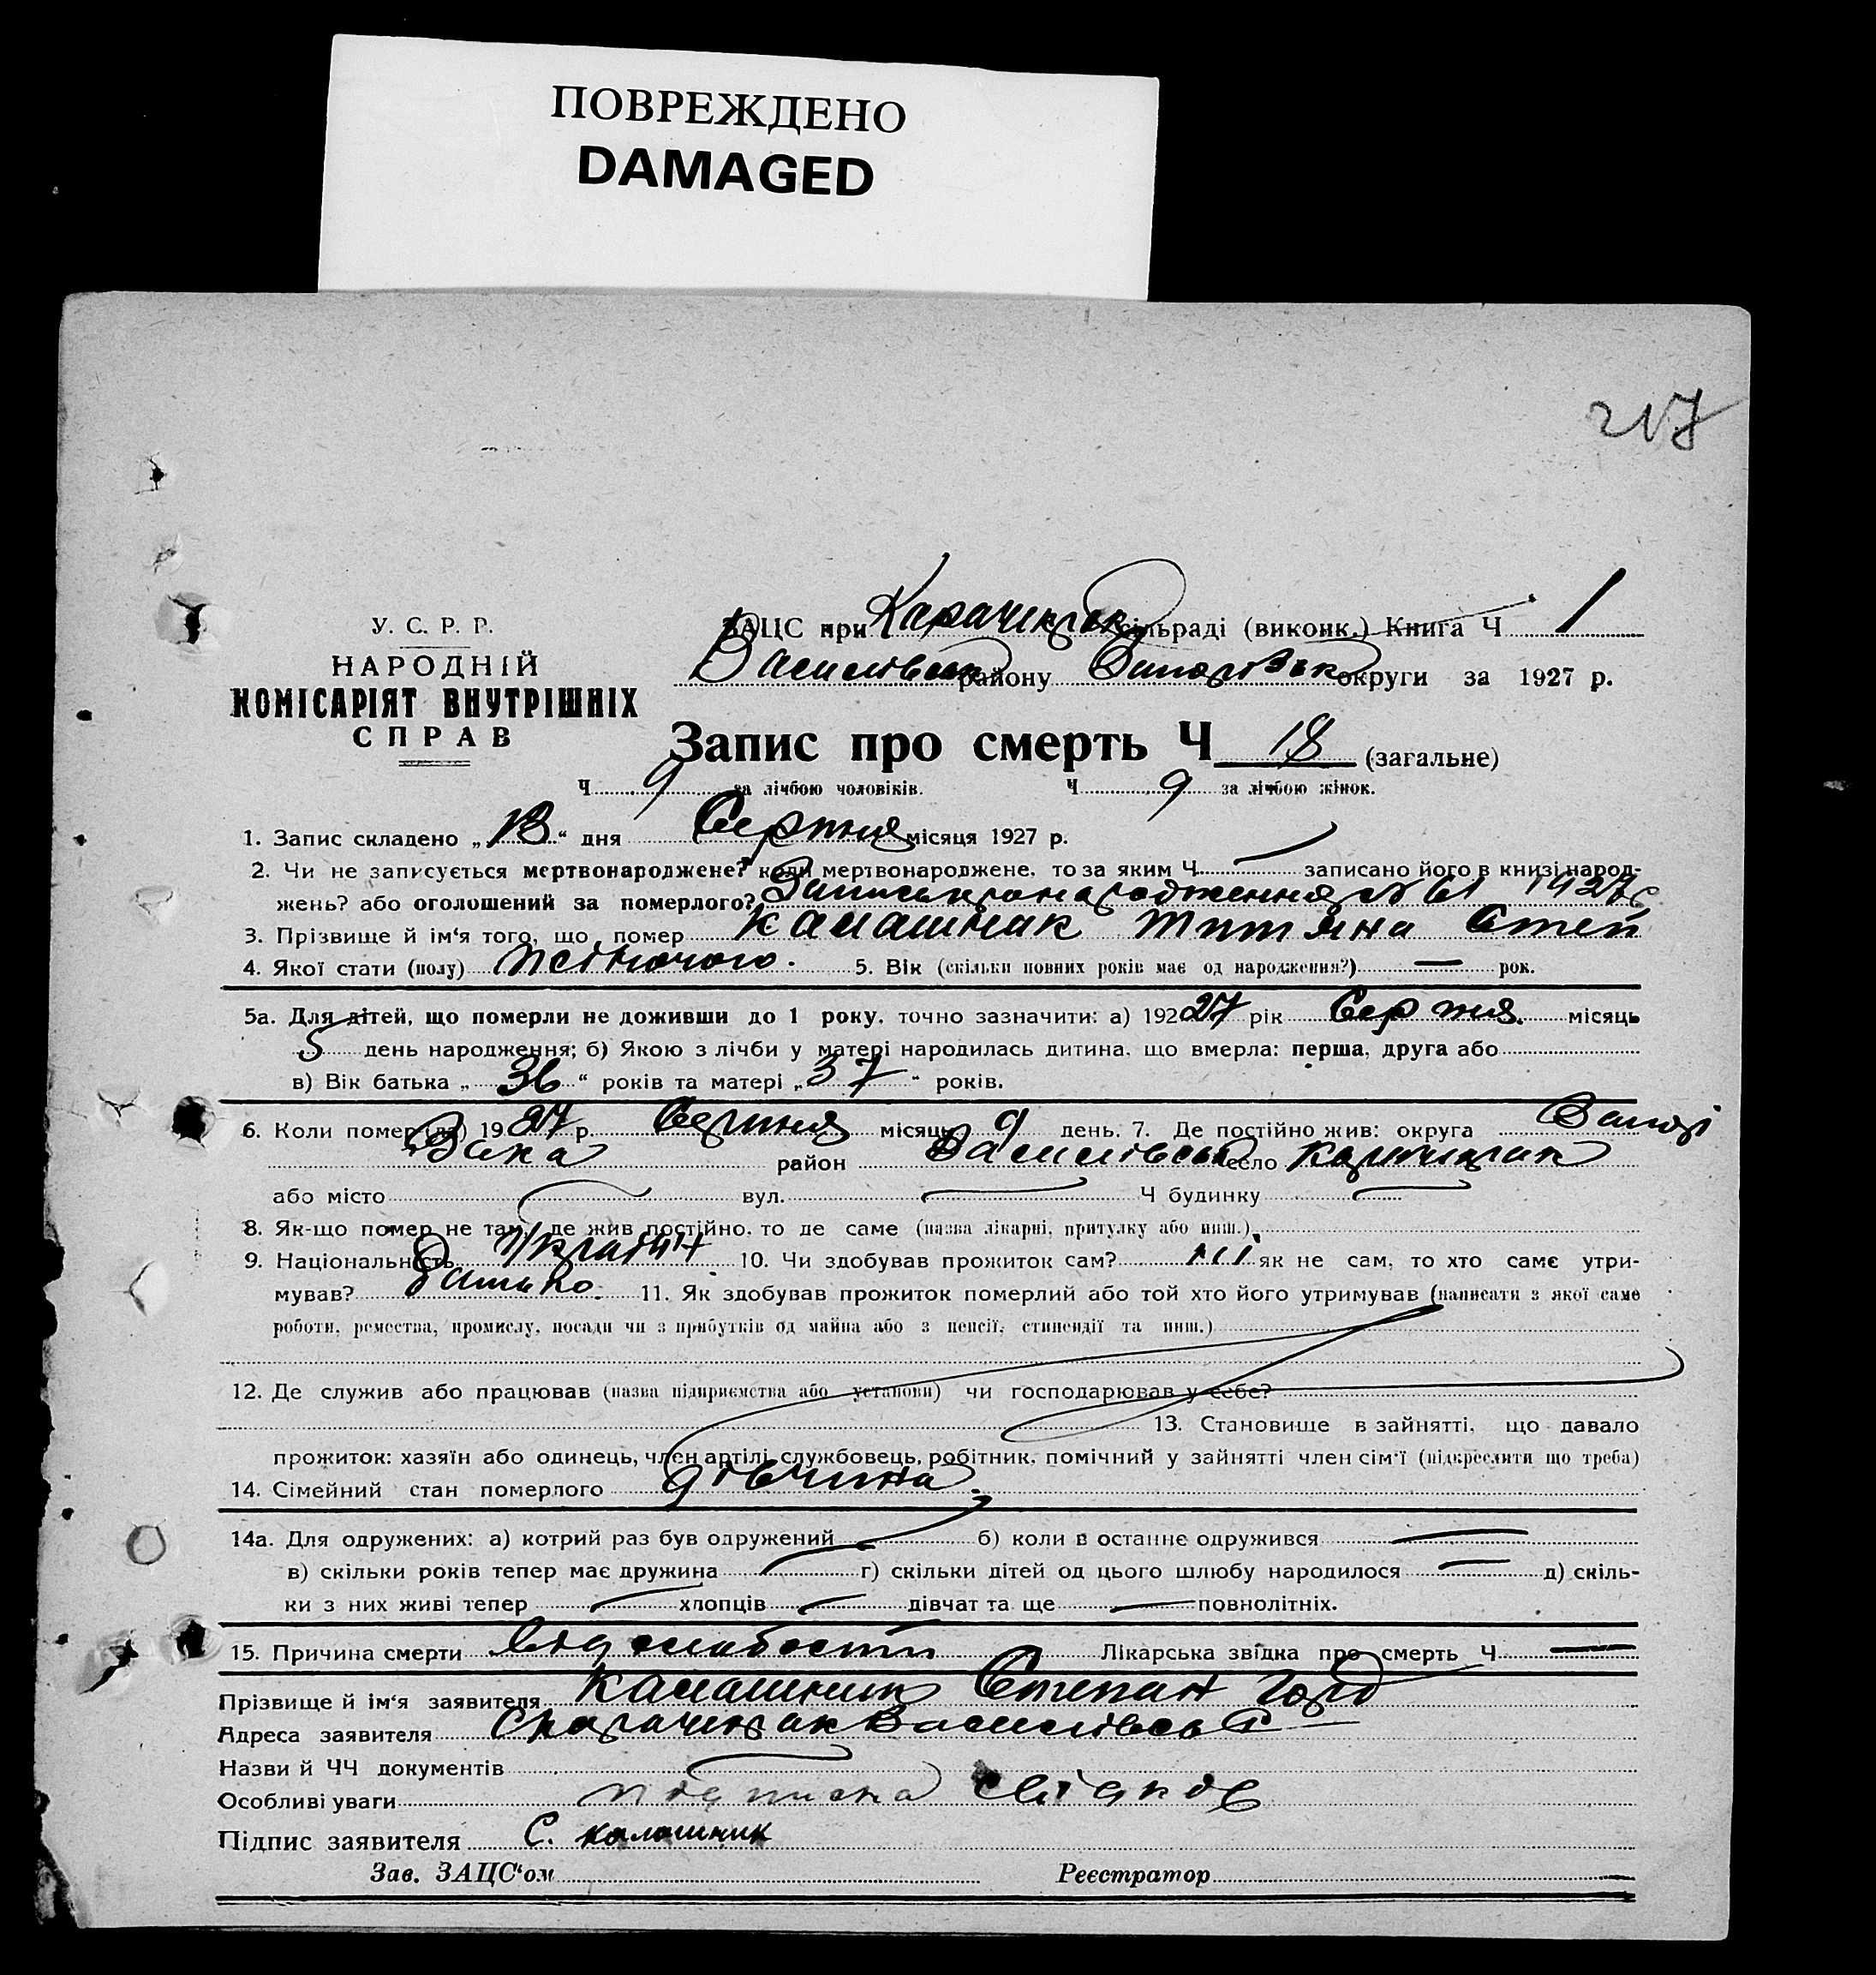 ПОВРЕЖДЕНО
DAMAGED
217
У. С. Р. Р.
НАРОДНІЙ
КОМІСАРІЯТ ВНУТРІШНІХ
СПРАВ
ЗАЦС при сільраді (виконк.) Книга Ч 1
Василівськ району Запорізьк округи за 1927 р.
Запис про смерть Ч 18 (загальне)
Ч 9 за лічбою чоловіків. Ч 9 за лічбою жінок.
1. Запис складено „13“ дня Серпня місяця 1927 р.
2. Чи не записується мертвонароджене? коли мертвонароджене, то за яким Ч записано його в книзі народ-
жень? або оголошений за померлого? № 61 1927
3. Прізвище й ім‘я того, що помер Калашник Титяна Степ
4. Якої стати (полу) жіночого. 5. Вік (скільки повних років має од народження?) — рок.
5а. Для дітей, що померли не доживши до 1 року, точно зазначити: а) 19227 рік Серпня. місяць
5 день народження; б) Якою з лічби у матері народилась дитина, що вмерла: перша, друга або
в) Вік батька „36“ років та матері „37“ років.
6. Коли помер (ла) 1927 р. Серпня місяць 9 день. 7. Де постійно жив: округа Запорі
зька район Василівськ село
або місто вул. Ч будинку
8. Як-що помер не там, де жив постійно, то де саме (назва лікарні, притулку або инш.)
9. Національність Україн 10. Чи здобував прожиток сам? ні як не сам, то хто саме утри-
мував? батько. 11. Як здобував прожиток померлий або той хто його утримував (написати з якої саме
роботи, ремества, промислу, посади чи з прибутків од майна або з пенсії, стипендії та инш.)
12. Де служив або працював (назва підприємства або установи) чи господарював у себе?
13. Становище в зайнятті, що давало
прожиток: хазяїн або одинець, член артілі, службовець, робітник, помічний у зайнятті член сім‘ї (підкреслити що треба)
14. Сімейний стан померлого дівчина.
14а. Для одружених: а) котрий раз був одружений б) коли в останнє одружився
в) скільки років тепер має дружина г) скільки дітей од цього шлюбу народилося д) скіль-
ки з них живі тепер хлопців дівчат та ще повнолітніх.
15. Причина смерти Від слабости Лікарська звідка про смерть Ч —
Прізвище й ім‘я заявителя Калашник Степан
Адреса заявителя Василівськ
Назви й ЧЧ документів
Особливі уваги підписка свідків
Підпис заявителя С. Калашник
Зав. ЗАЦС‘ом Реєстратор